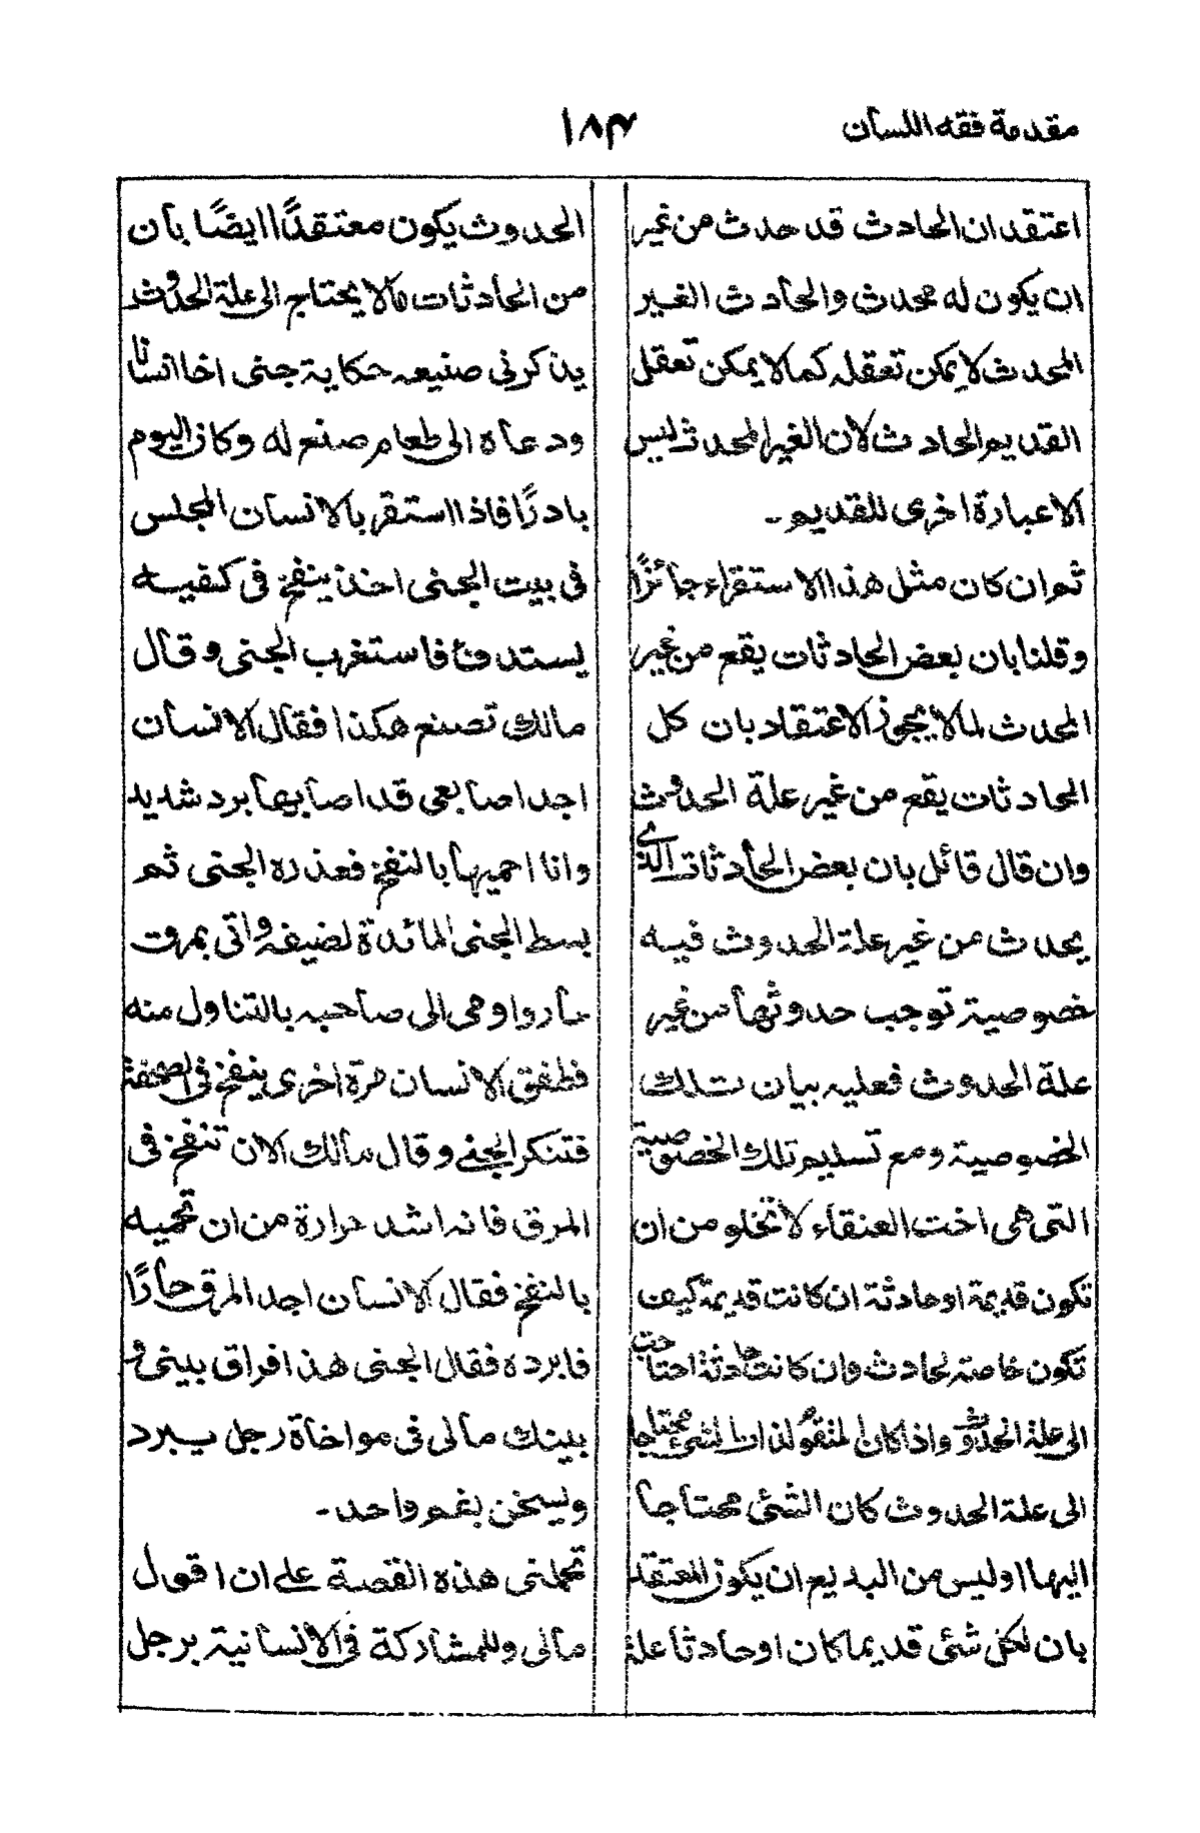 مقدمة فقه اللسان
١٨٣
اعتقد ان الحادث قد حدث من غير
ان يكون له محدث والحادث الغير
المحدث لا يمكن تعقله كما لا يمكن تعقل
القديم الحادث لأن الغير المحدث ليس
الا عبارة اخرى للقديم ـ
ثم ان كان مثل هذا الاستقراء جائزًا
وقلنا بان بعض الحادثات يقع من غير
المحدث لما لا يجوز الاعتقاد بان كل
الحادثات يقع من غير علة الحدوث
وان قال قائل بان بعض الحادثات الذى
يحدث من غير علة الحدوث فيه
خصوصية توجب حدوثها من غير
علة الحدوث فعليه بيان تلك
الخصوصية ومع تسليم تلك الخصوصية
التى هى اخت العنقاء لا تخلو من ان
تكون قديمة او حادثة ان كانت قديمة كيف
تكون خاصة لحادث وان كانت حادثة احتاجت
الى علة الحدوث واذا كان المتقوم لذات الشئ محتاجا
الى علة الحدوث كان الشئ محتاجا
اليها اوليس من البديع ان يكون المعتقد
بان لكل شئ قديما كان او حادثا علة
الحدوث يكون معتقدًا ايضًا بأن
من الحادثات مالا يحتاج الى علة الحدوث
يذكرنى صنيعه حكاية جنى اخا انسانا
ودعاه الى طعام صنع له وكان اليوم
باردًا فاذا استقر بالانسان المجلس
فى بيت الجنى اخذ ينفخ فى كفيه
يستدفئ فاستغرب الجنى وقال
مالك تصنع هكذا فقال الانسان
اجد اصابعى قد اصابها برد شديد
وانا احميها بالنفخ فعذره الجنى ثم
بسط الجنى المائدة لضيفه واتى بمرق
حار واومى الى صاحبه بالتناول منه
فطفق الانسان مرة اخرى ينفخ فى الصحفة
فتنكر الجنى وقال مالك الان تنفخ فى
المرق فانه اشد حرارة من ان تحميه
بالنفخ فقال الانسان اجد المرق حارًا
فابرده فقال الجنى هذا فراق بينى و
بينك مالى فى مواخاة رجل يبرد
ويسخن بفم واحد ـ
تحملنى هذه القصة على ان اقول
مالى وللمشاركة فى الانسانية برجل